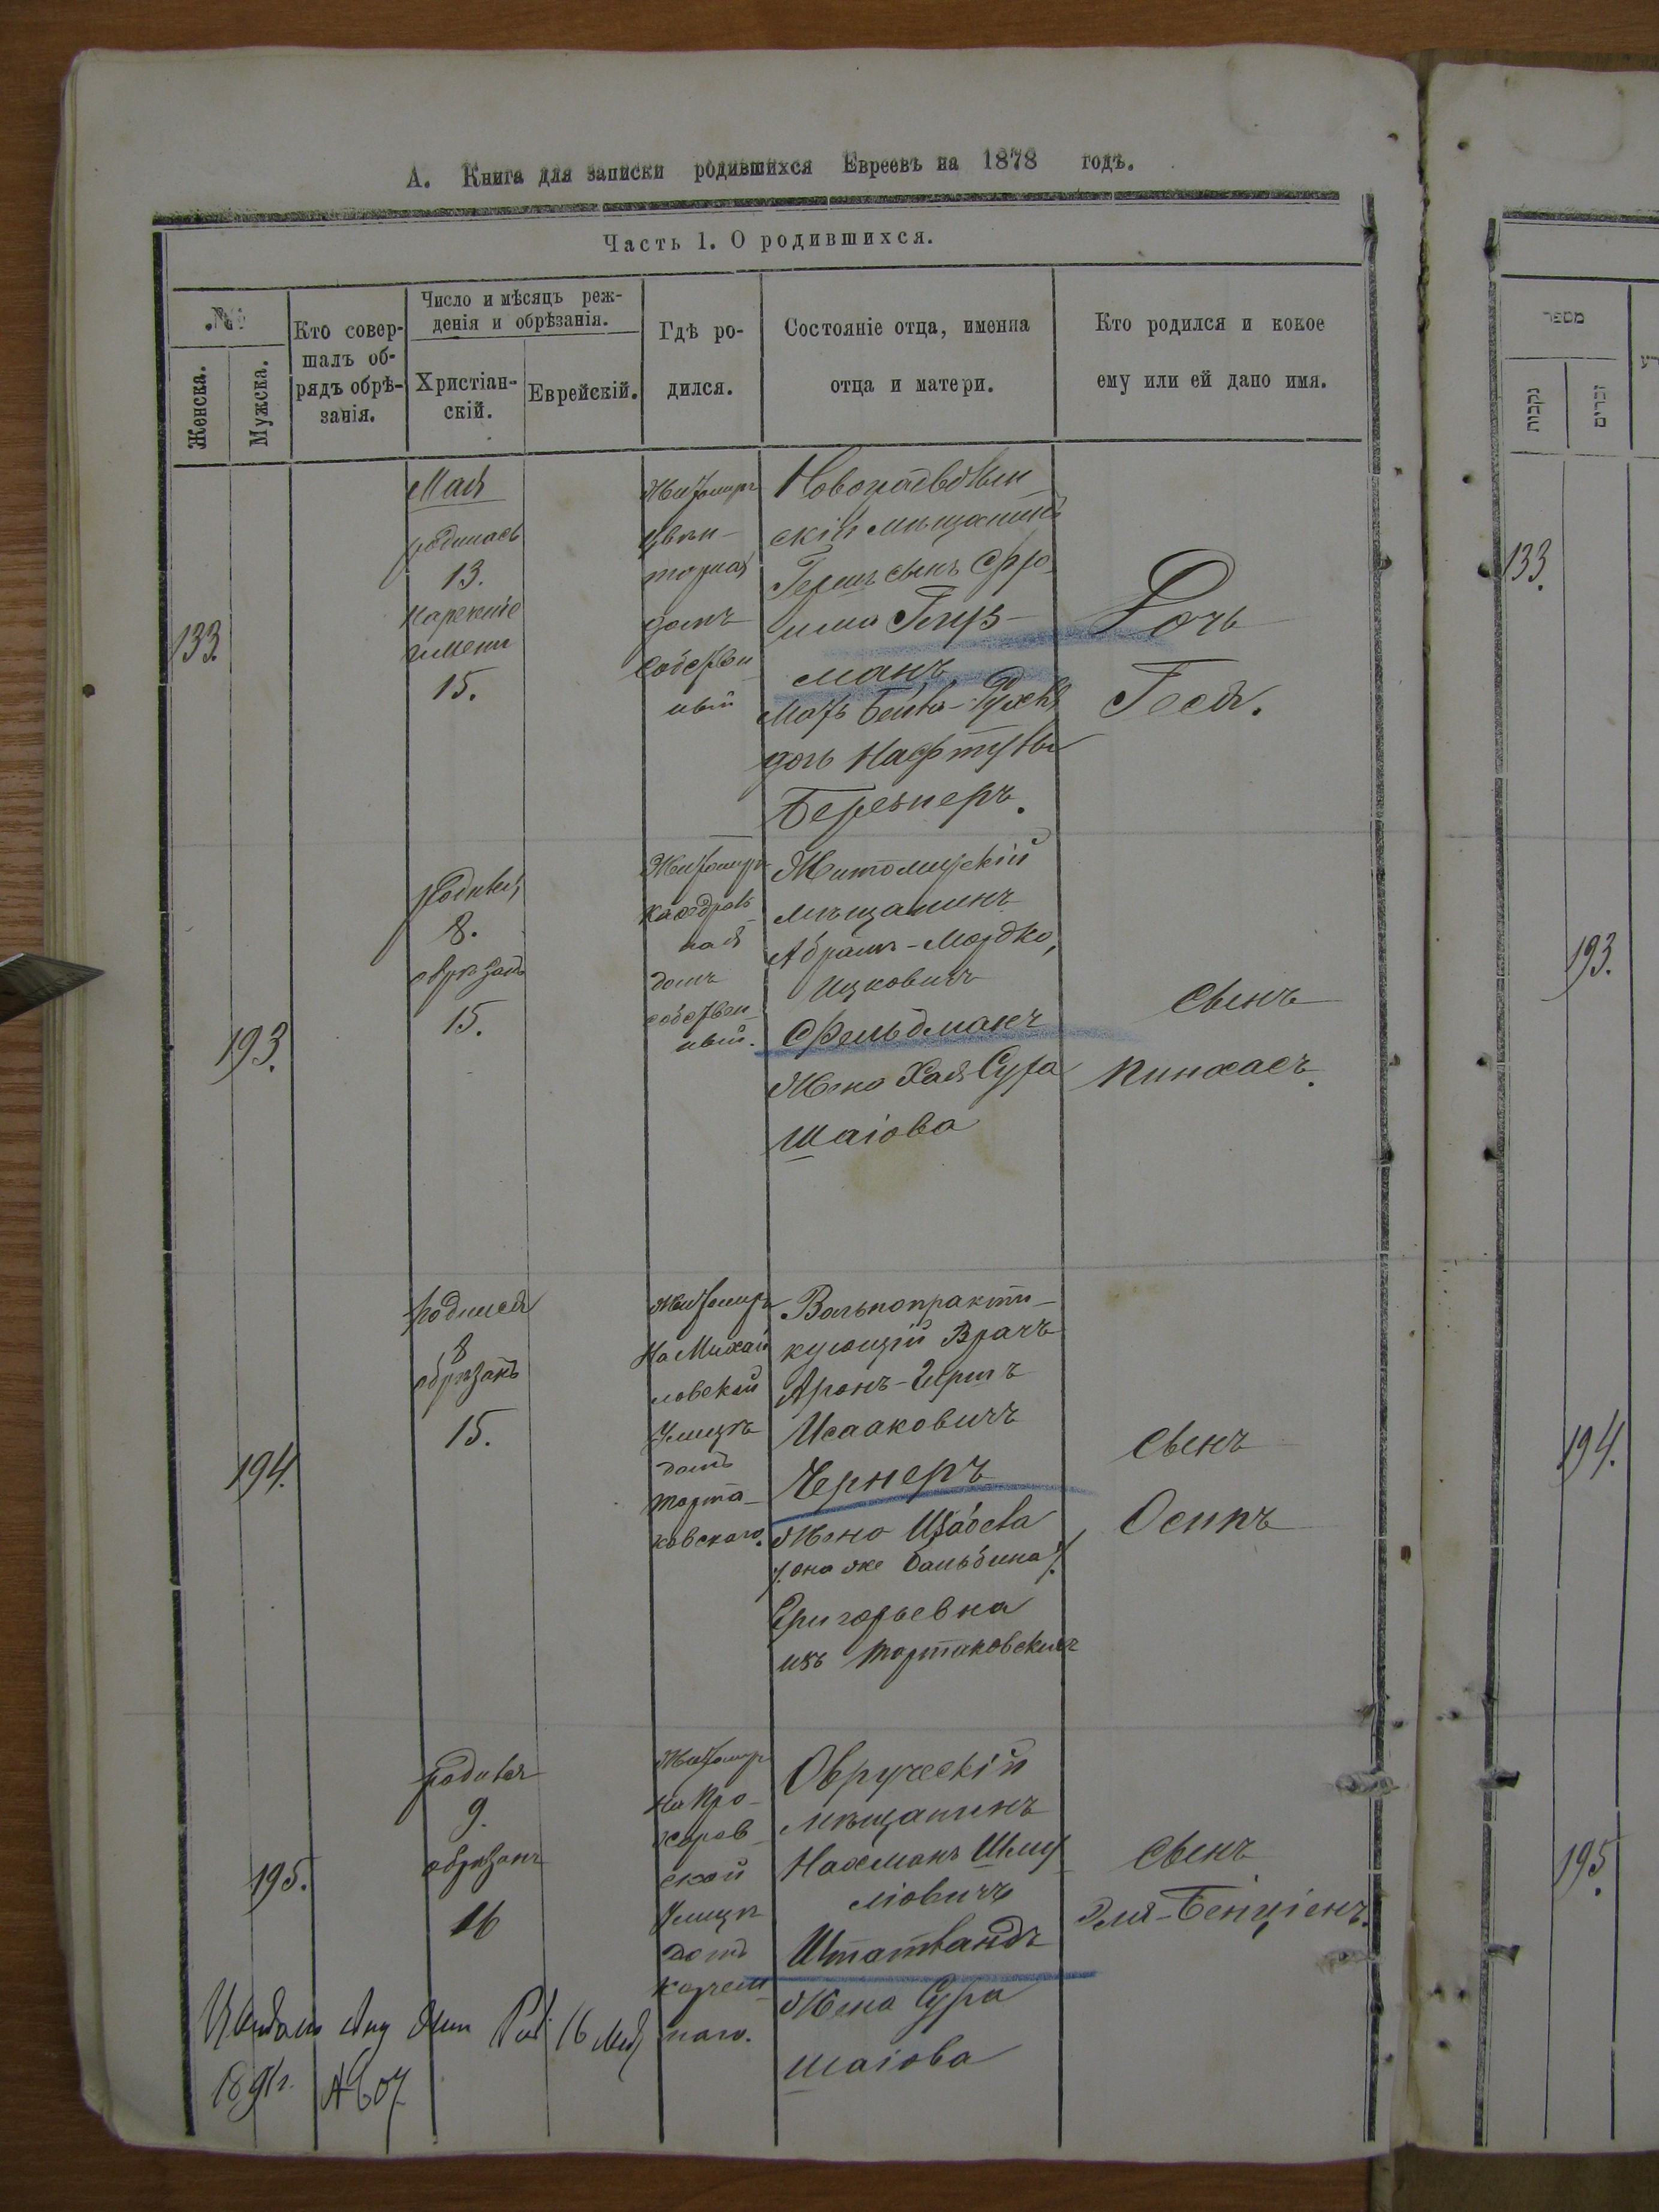 А. Книга для записки родившихся Евреевъ на 1878 годъ.
Часть 1. О родившихся.
№
Женска.
Мужска.
Кто совер-
шалъ об-
рядъ обрѣ-
занія.
Число и мѣсяцъ реж-
денія и обрѣзанія.
Христіан-
скій.
Еврейскій.
Гдѣ ро-
дился.
Состояніе отца, именпа
отца и матери.
Кто родился и кокое
ему или ей дапо имя.
133.
Мая
родилась
13.
наречение
имени
15.
Житомиръ
домъ
собствен
ный
скій мѣщанинъ
Гершъ сынъ Фро
има
манъ
Мать
дочь Нафтулы
Березнеръ.
Дочь
Геся.
193.
родился
8.
обрѣзанъ
15.
Житомиръ
Кафедраль
ная
домъ
собствен
ный.
Житомирскій
мѣщанинъ
Абрамъ-Мордко,
Ицковичъ
Фельдманъ
Жена Хая Сура
Шаіова
Сынъ
Пинхасъ.
194.
Родился
8
обрѣзанъ
15.
Житомиръ
На Михай
ловской
Улицѣ
домъ
Торта-
ковскаго.
Вольнопракти-
кующій Врачъ
Аронъ-Гершъ
Исааковичъ
Чернеръ
Жена Изабела
/она же Бальбина/
Григорьевна
изъ Тортаковскихъ
Сынъ
Осипъ
195.
родился
9.
обрѣзанъ
16
Житомиръ
На Про-
харов
ской
Улицѣ
домъ
Корчем
наго.
Овручскій
Мѣщанинъ
Нахманъ Шму
ліовичъ
Штатландъ
Жена Сура
Шаіова
Сынъ
Эля-Бенціенъ.
16
1891г. № 607
מספר
נקבות
זכרים
133.
193.
194.
195.